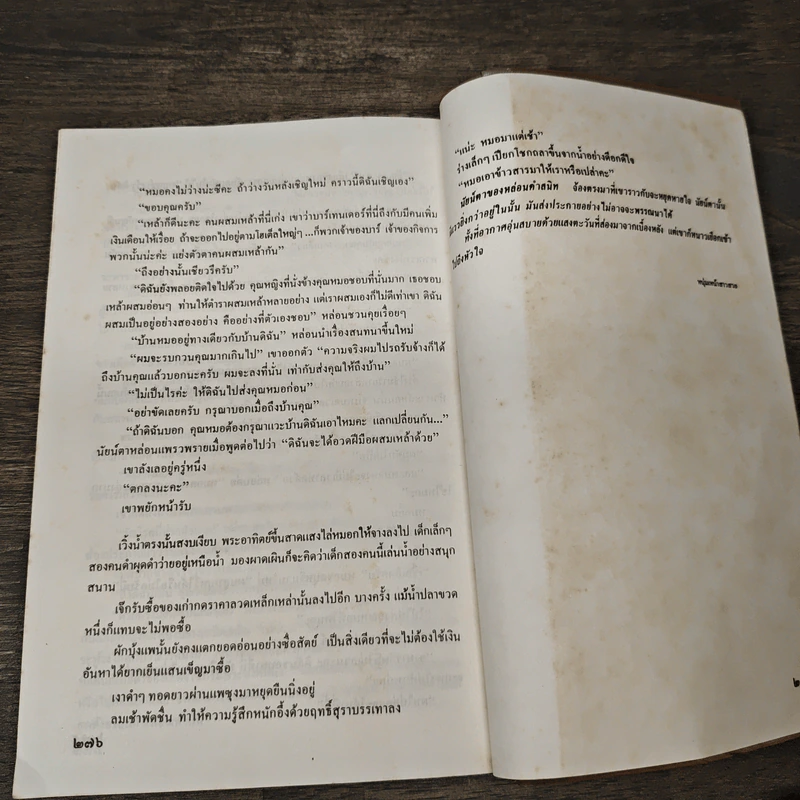 “หมอคงไม่ว่างน่ะซีคะ ถ้าว่างวันหลังเชิญใหม่ คราวนี้ดิฉันเชิญเอง”
“ขอบคุณครับ”
“เหล้าก็ดีนะคะ คนผสมเหล้าที่นี่เก่ง เขาว่าบาร์เทนเดอร์ที่นี่ถึงกับมีคนเพิ่ม
เงินเดือนให้เรื่อย ถ้าจะออกไปอยู่ตามไฮเต็ลใหญ่ๆ ...ก็พวกเจ้าของบาร์ เจ้าของกิจการ
พวกนั้นน่ะค่ะ แย่งตัวตาคนผสมเหล้ากัน”
“ถึงอย่างนั้นเชียวรึครับ”
“ดิฉันยังพลอยติดใจไปด้วย คุณหญิงที่นั่งข้างคุณหมอชอบที่นั่นมาก เธอชอบ
เหล้าผสมอ่อนๆ ท่านให้ตำราผสมเหล้าหลายอย่าง แต่เราผสมเองก็ไม่ดีเท่าเขา ดิฉัน
ผสมเป็นอยู่อย่างสองอย่าง คืออย่างที่ตัวเองชอบ” หล่อนชวนคุยเรื่อยๆ
“บ้านหมออยู่ทางเดียวกับบ้านดิฉัน” หล่อนนำเรื่องสนทนาขึ้นใหม่
“ผมจะรบกวนคุณมากเกินไป” เขาออกตัว “ความจริงผมไปรถรับจ้างก็ได้
ถึงบ้านคุณแล้วบอกนะครับ ผมจะลงที่นั่น เท่ากับส่งคุณให้ถึงบ้าน”
“ไม่เป็นไรค่ะ ให้ดิฉันไปส่งคุณหมอก่อน”
“อย่าขัดเลยครับ กรุณาบอกเมื่อถึงบ้านคุณ”
“ถ้าดิฉันบอก คุณหมอต้องกรุณาแวะบ้านดิฉันเอาไหมคะ แลกเปลี่ยนกัน...”
นัยน์ตาหล่อนแพรวพรายเมื่อพูดต่อไปว่า “ดิฉันจะได้อวดฝีมือผสมเหล้าด้วย”
เขาลังเลอยู่ครู่หนึ่ง
“ตกลงนะคะ”
เขาพยักหน้ารับ
เวิ้งน้ำตรงนั้นสงบเงียบ พระอาทิตย์ขึ้นสาดแสงไล่หมอกให้จางลงไป เด็กเล็กๆ
สองคนดำผุดดำว่ายอยู่เหนือน้ำ มองผาดเผินก็จะคิดว่าเด็กสองคนนี้เล่นน้ำอย่างสนุก
สนาน
เจ๊กรับซื้อของเก่ากดราคาลวดเหล็กเหล่านั้นลงไปอีก บางครั้ง แม้น้ำปลาขวด
หนึ่งก็แทบจะไม่พอซื้อ
ผักบุ้งแพนั้นยังคงแตกยอดอ่อนอย่างซื่อสัตย์ เป็นสิ่งเดียวที่จะไม่ต้องใช้เงิน
อันหาได้ยากเย็นแสนเข็ญมาซื้อ
เงาดำๆ ทอดยาวผ่านแพซุงมาหยุดยืนนิ่งอยู่
ลมเช้าพัดชื่น ทำให้ความรู้สึกหนักอึ้งด้วยฤทธิ์สุราบรรเทาลง
๒๗๖
“แน่ะ หมอมาแต่เช้า”
ร่างเล็กๆ เปียกโชกถลาขึ้นจากน้ำอย่างดีอกดีใจ
“หมอเอาข้าวสารมาให้เราหรือเปล่าคะ”
นัยน์ตาของหล่อนดำสนิท จ้องตรงมาที่เขาราวกับจะหยุดหายใจ นัยน์ตานั้น
อยู่ในนั้น มันส่งประกายอย่างไม่อาจจะพรรณนาได้
ทั้งที่อากาศอุ่นสบายด้วยแสงตะวันที่ส่องมาจากเบื้องหลัง แต่เขาก็หนาวเยือกเข้า
ไปถึงหัวใจ